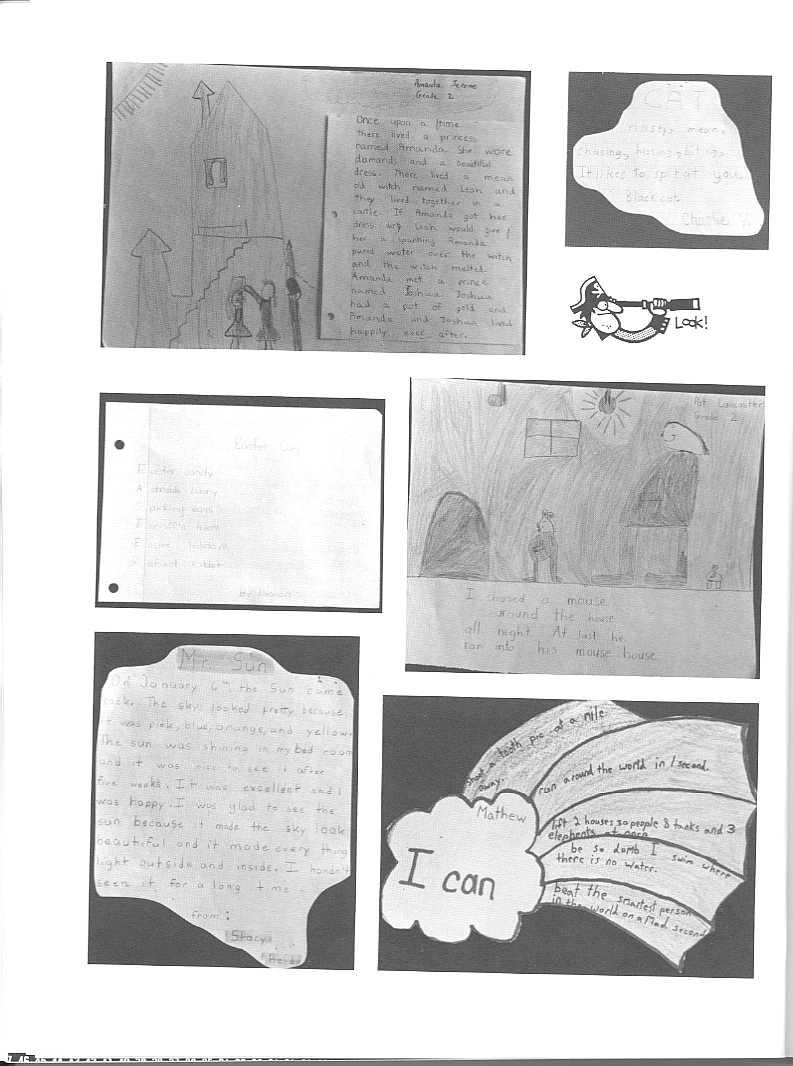 Amanda Jerome
Grade 2
Once upon a time
there lived a princess
named Amanda. She wore
diamonds and a beautiful
dress. There lived a mean
old witch named Leah and
they lived together in a
castle. If Amanda got her
dress wet Leah would give
her a spanking. Amanda
pured water over the witch
and the witch melted.
Amanda met a prince
named Joshua. Joshua
had a pot of gold and
Amanda and Joshua lived
happily ever after.
CAT
nasty, mean,
chasing, hissing, biting,
It likes to spit at you.
Black cat
Charlie
Look!
Easter
Easter candy
A
E
by
Pat Lancaster
Grade 2
I chased a mouse
around the house
all night. At last he
ran into his mouse house
Mr. Sun
On January 6th the sun came
back. The sky looked pretty because
it was pink, blue, orange, and yellow.
The sun was shining in my bed room
and it was nice to see it after
five weeks. It was excellent and I
was happy. I was glad to see the
sun because it made the sky look
beautiful and it made every thing
light outside and inside. I
seen it for a long time
from:
Stacy
Mathew
I can
shoot a tooth pic at a mile
away.
run around the world in 1 second.
lift 2 houses 30 people 8 tanks and 3
elephents at once
be so domb I swim where
there is no water.
beat the smartest person
in the world on a Mad second